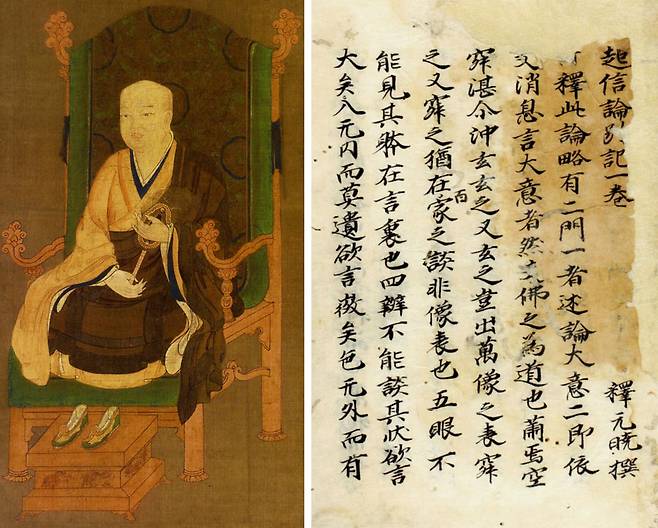 起信論別記一卷 釋元曉撰
釋此論略有二門一者述論大意二即依
文消息言大意者然夫佛之為道也蕭焉空
寂湛尒沖玄玄之又玄之豈出萬像之表寂
之又寂之猶在百家之談非像表也五眼不
能見其軀在言裏也四辯不能談其狀欲言
大矣入无内而莫遺欲言微矣包无外而有